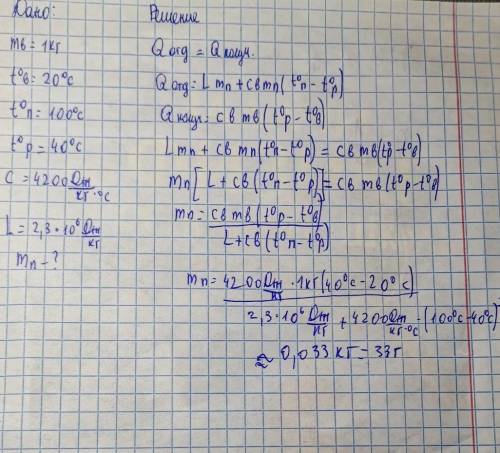 Дано:
mв = 1кг
t°в = 20°с
t°п = 100°с
t°р = 40°с
С = 4200 Дж/кг·°с
L = 2,3·10⁶ Дж/кг
mп - ?
Решение
Qотд = Qполуч.
Qотд = Lmп + cвmп(t°п - t°р)
Qполуч = cвmв(t°р - t°в)
Lmп + cвmп(t°п - t°р) = cвmв(t°р - t°в)
mп[L + cв(t°п - t°р)] = cвmв(t°р - t°в)
mп = cвmв(t°р - t°в) / L + cв(t°п - t°р)
mп = 4200 Дж/кг · 1кг(40°с - 20°с) / 2,3·10⁶ Дж/кг + 4200 Дж/кг·°с · (100°с - 40°с)
≈ 0,033 кг = 33г